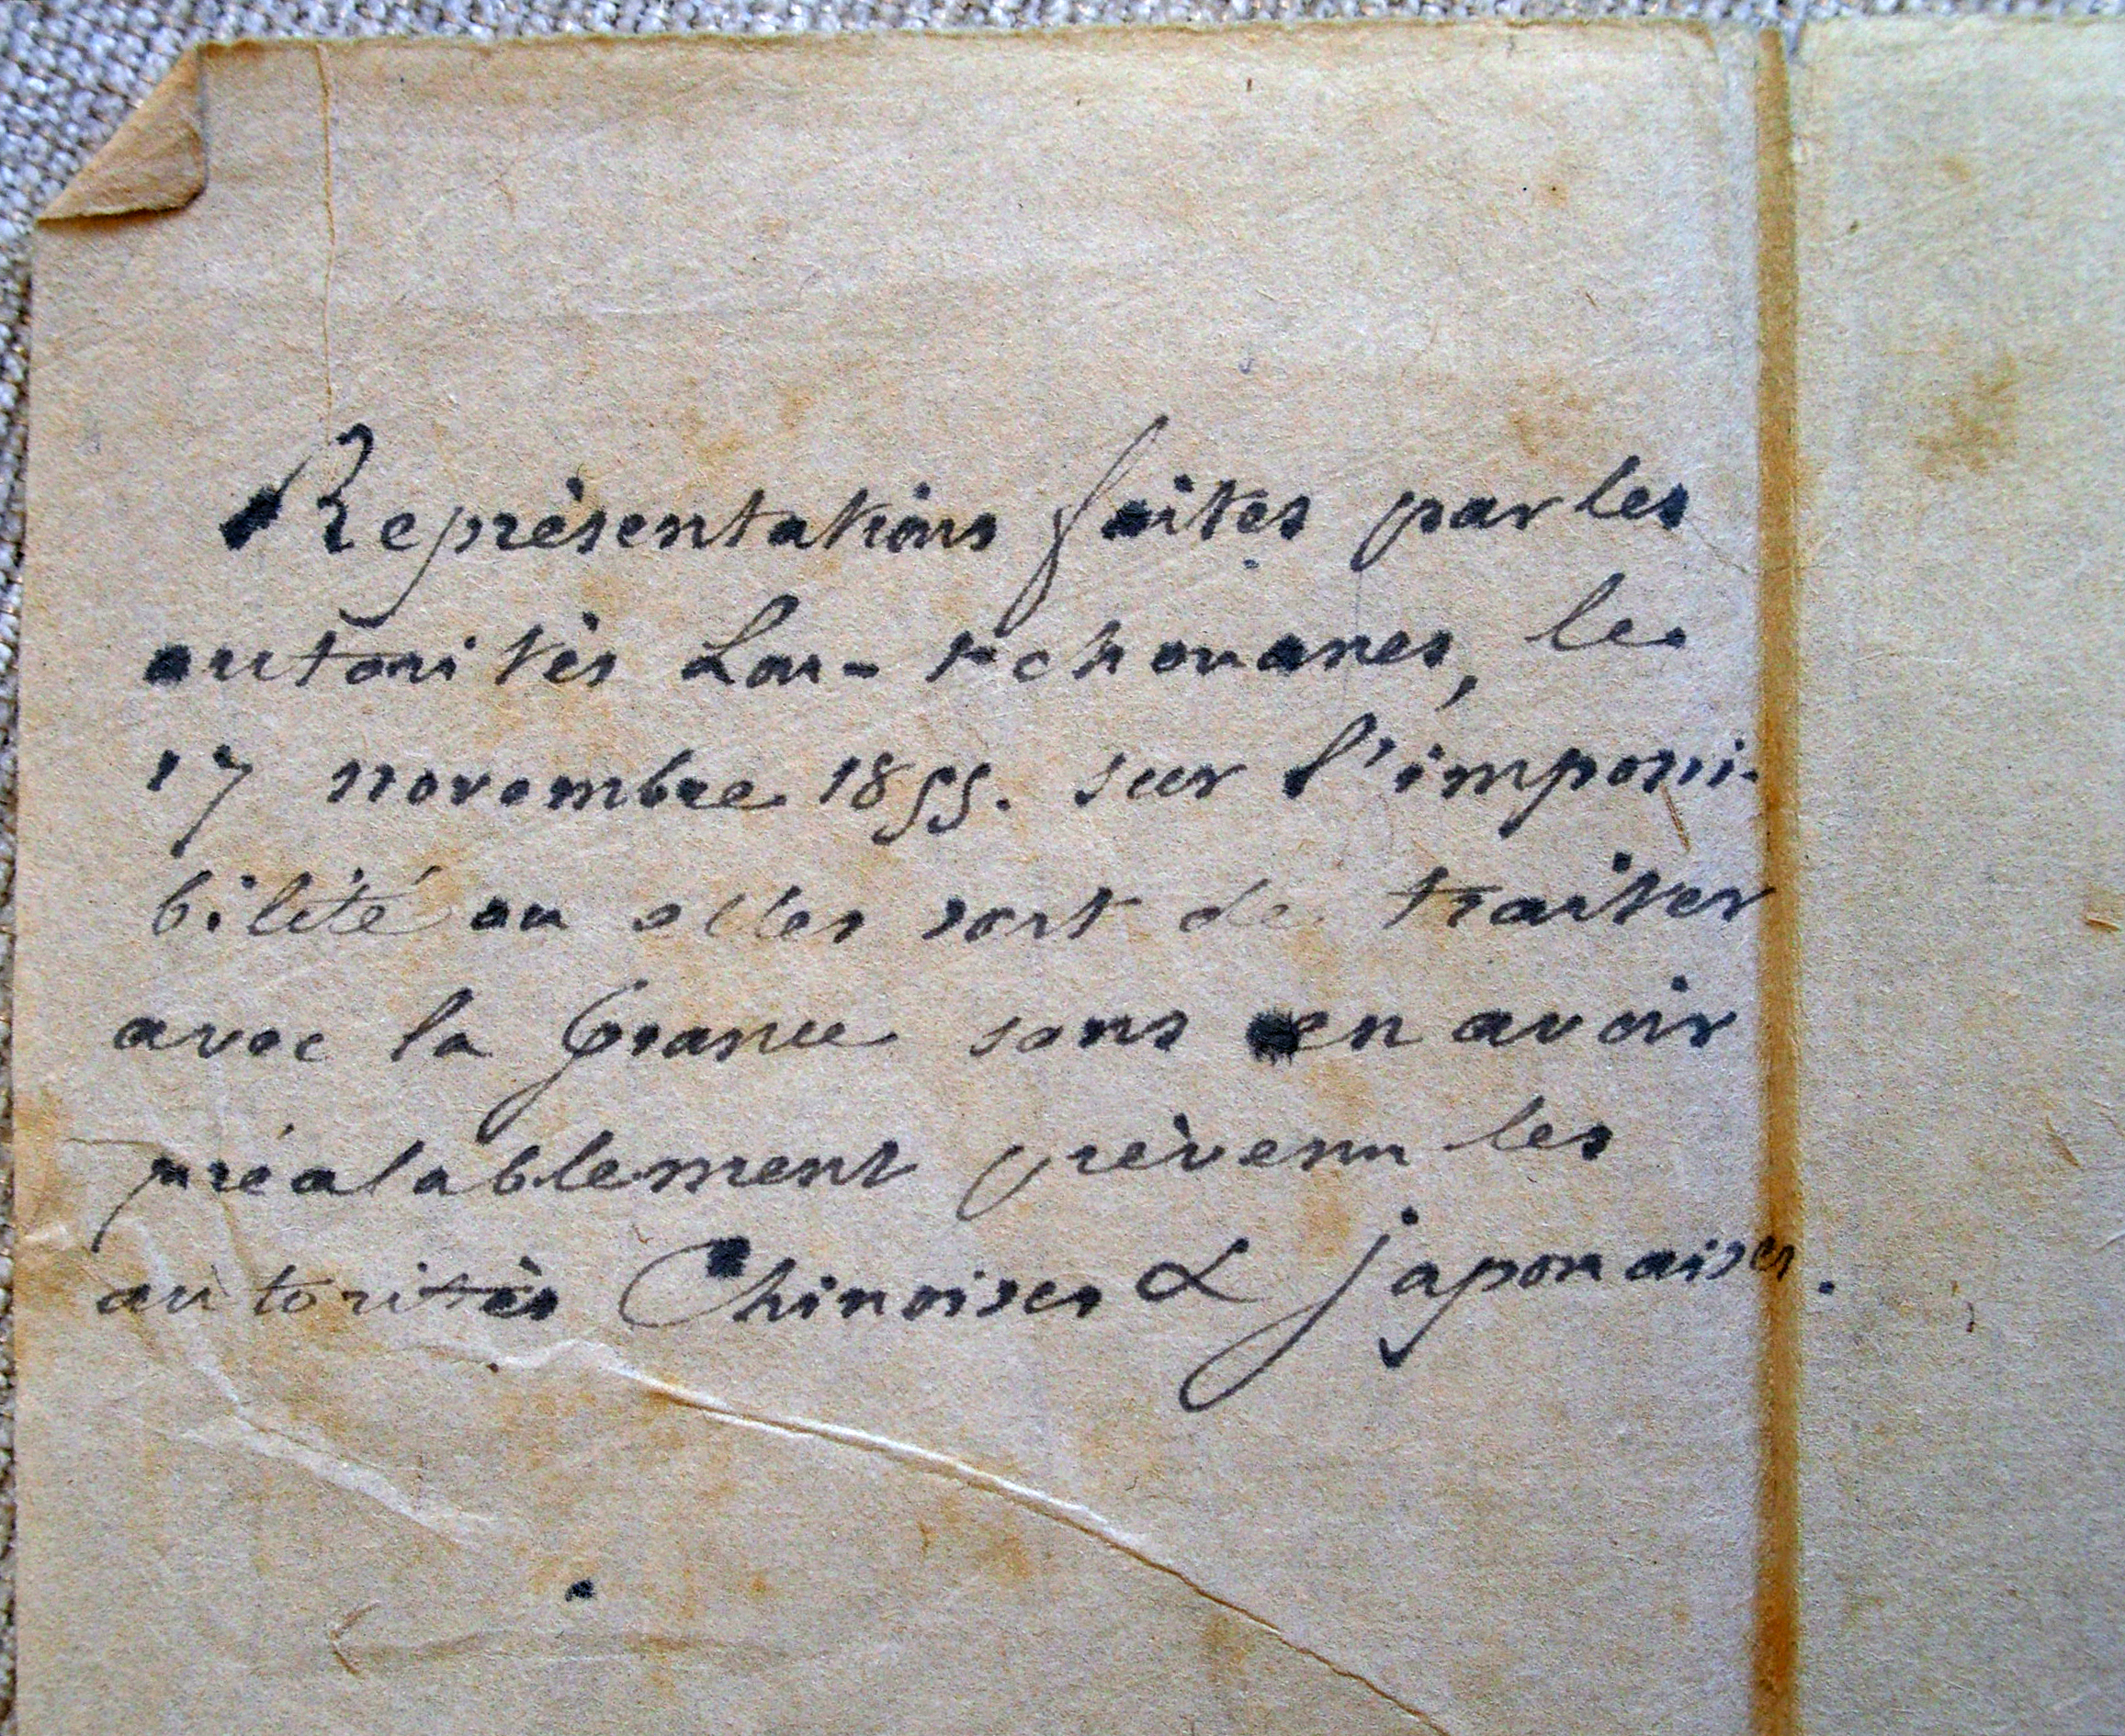 Représentations faites par les
autorités Lou-tchouanes, le
17 novembre 1855. sur l'impossi-
bilité ou elles sont de traiter
avec la France sans en avoir
préalablement prévenu les
autorités Chinoises & japonaises.